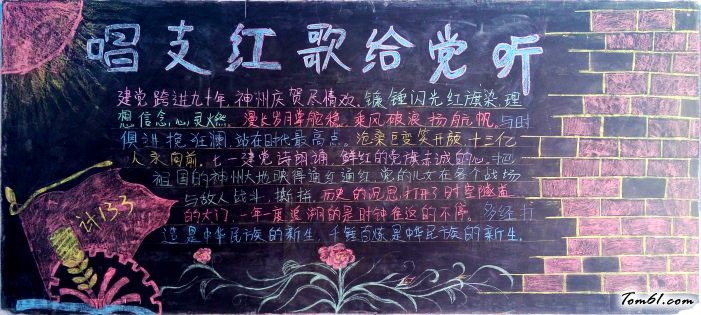 唱支红歌给党听
建党跨进九十年,神州庆贺尽情欢,镰锤闪光红旗染,理
想信念,心灵燃。漫长岁月掌舵稳,乘风破浪扬航帆。与时
俱进挽狂澜,站在时代最高点。沧桑巨变笑开颜,十三亿
人永向前。七一建党诗朗诵,鲜红的党旗赤诚的心。把
祖国的神州大地映得通红通红,党的儿女在各个战场
与敌人战斗、撕拼。历史的沉思,打开了时空隧道
的大门,一年一度追溯的是时钟在这的不停。多经打
造是中华民族的新生,千锤百炼是中华民族的新生.
计133
Tom61.com